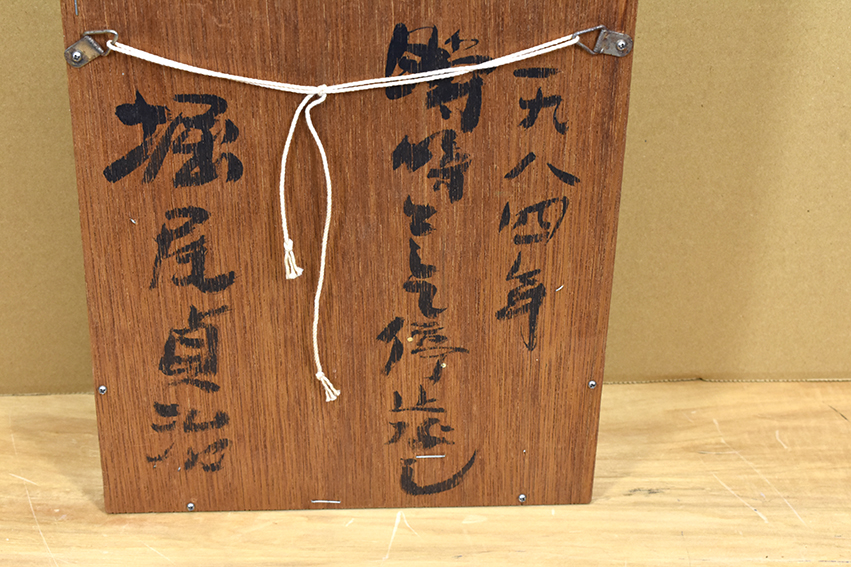 一九八四年
時として停
堀尾貞治